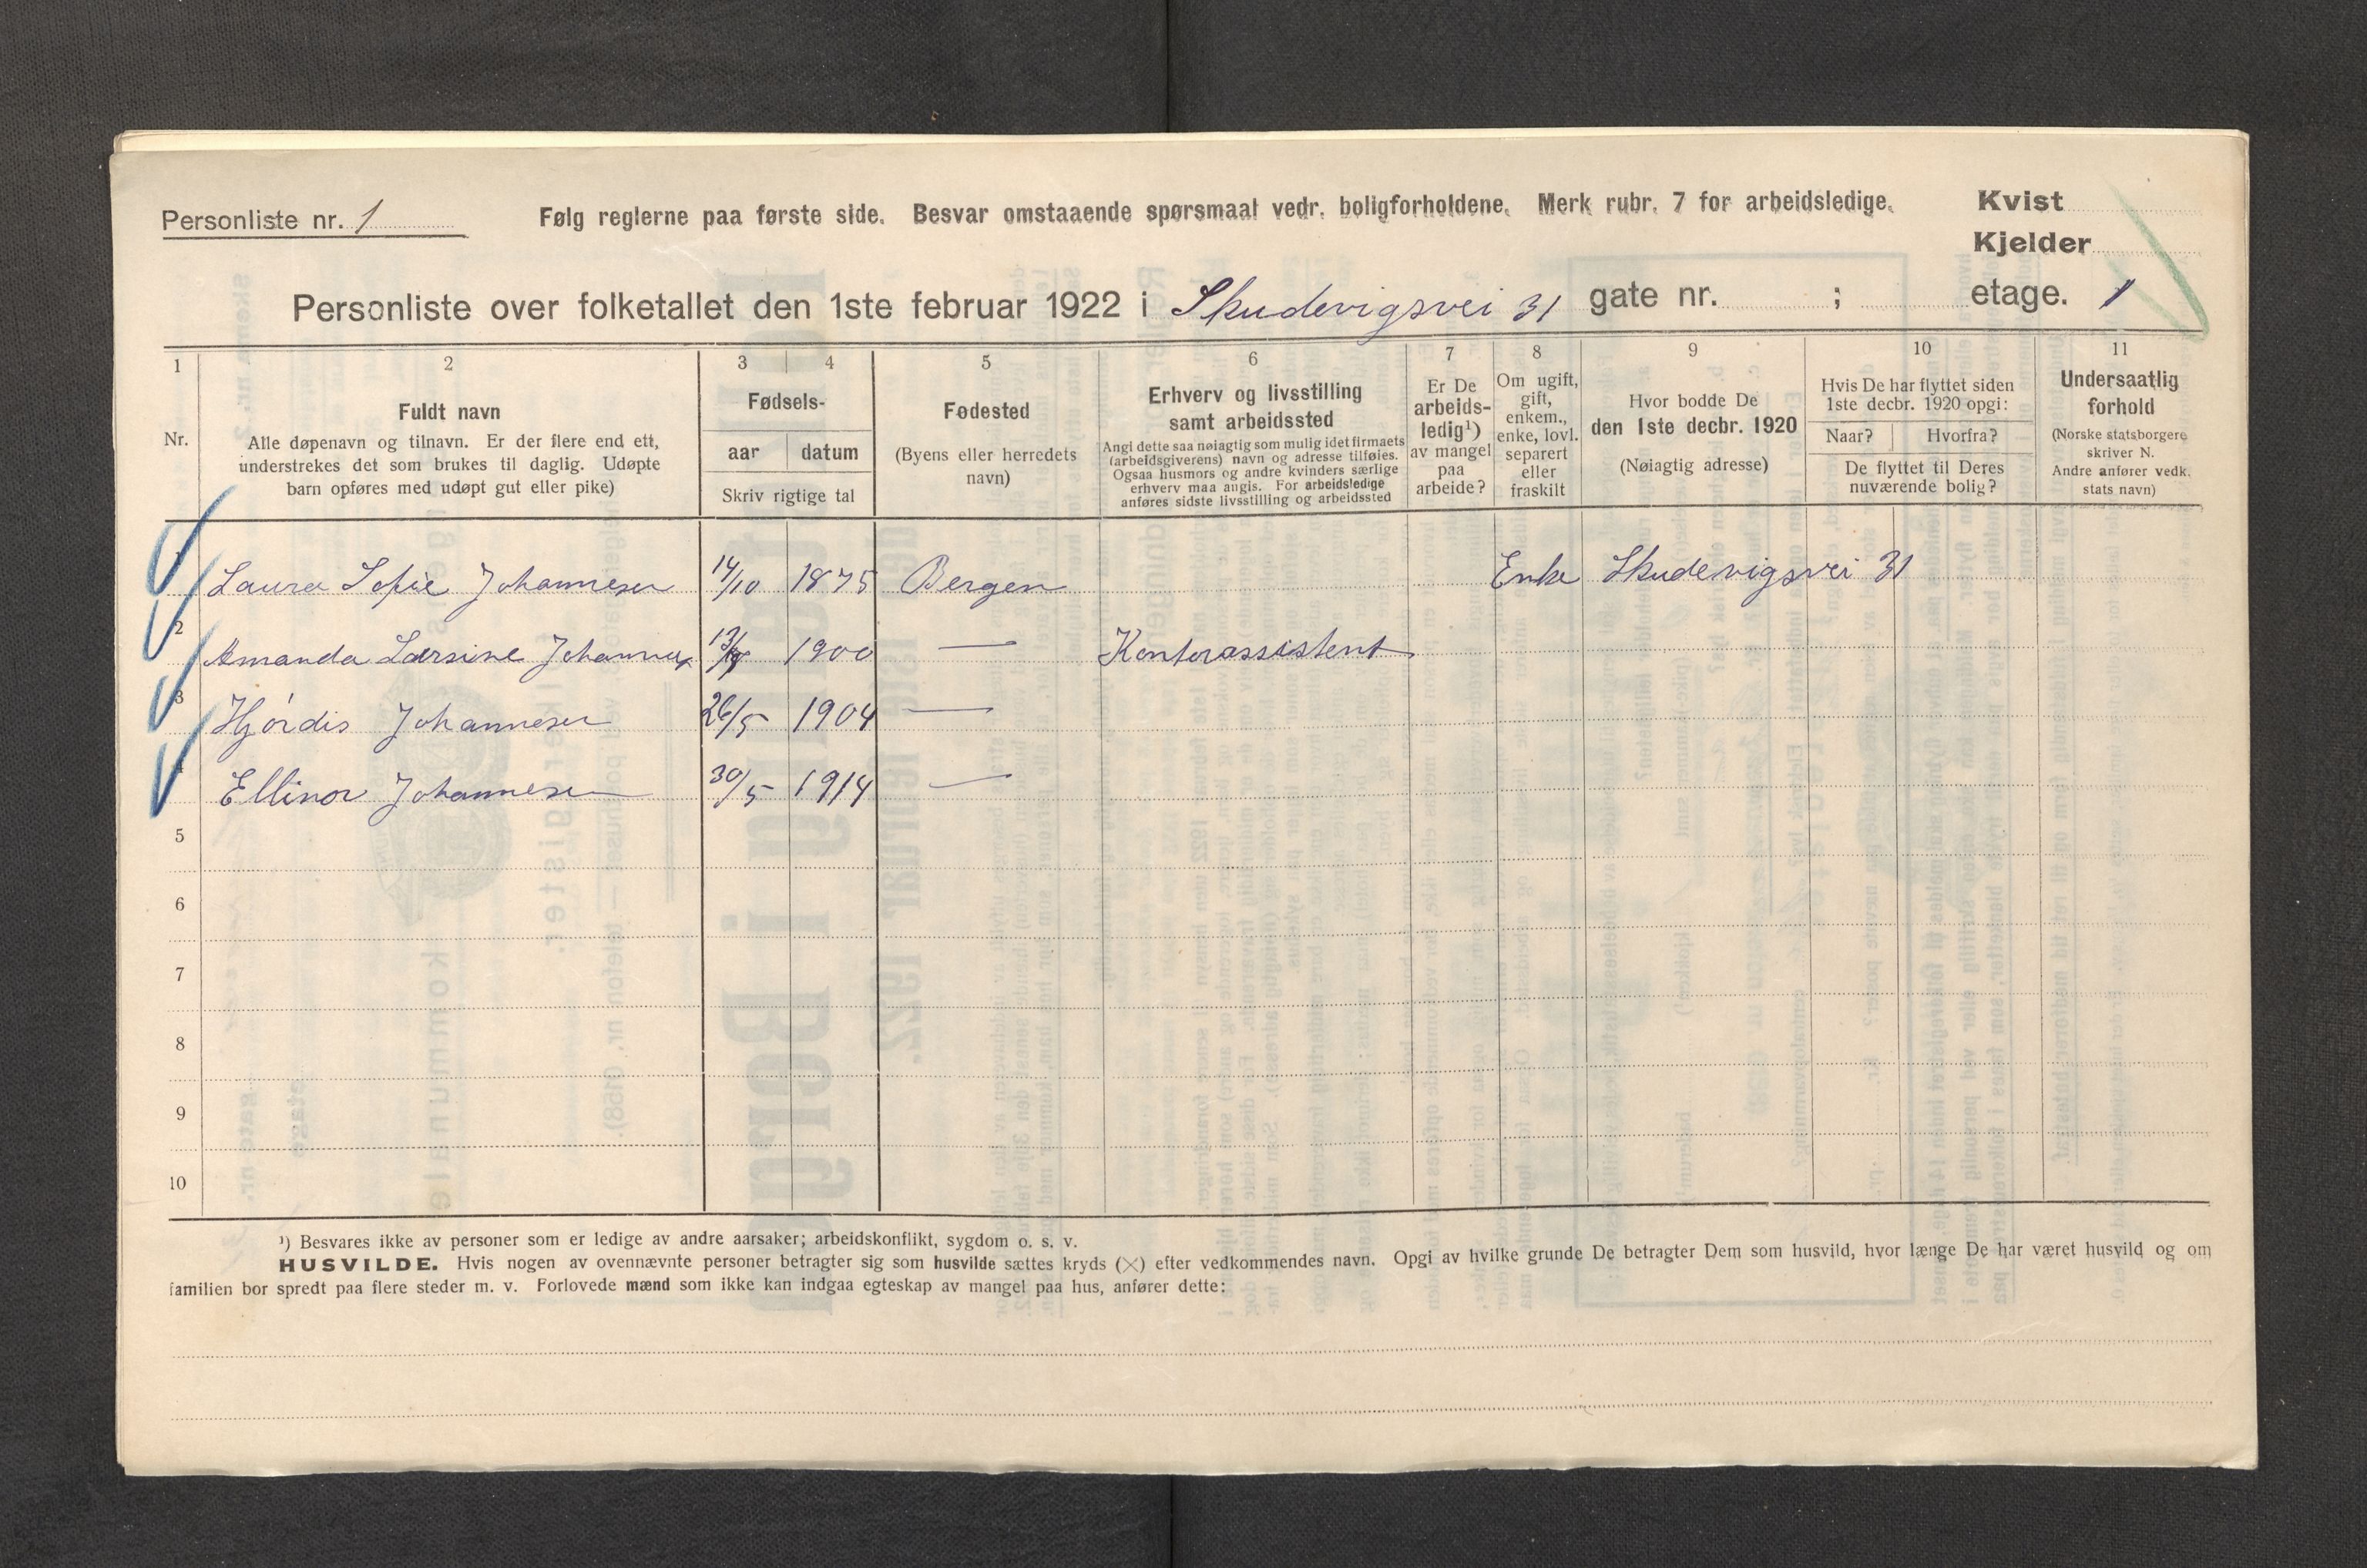 Personliste nr. 1
Følg reglerne paa første side. Besvar omstaaende spørsmaal vedr. boligforholdene. Merk rubr. 7 for arbeidsledige.
Kvist
Kjelder
Personliste over folketallet den 1ste februar 1922 i Skudevigsvei 31 gate nr. ; etage. 1
1 2 3 4 5 6 7 8 9 10 11
Nr.
Fuldt navn
Alle døpenavn og tilnavn. Er der flere end ett,
understrekes det som brukes til daglig. Udøpte
barn opføres med udøpt gut eller pike)
Fødsels-
aar datum
Skriv rigtige tal
Fødested
(Byens eller herredets
navn)
Erhverv og livsstilling
samt arbeidssted
Angi dette saa nøiagtig som mulig idet firmaets
(arbeidsgiverens) navn og adresse tilføies.
Ogsaa husmors og andre kvinders særlige
erhverv maa angis. For arbeidsledige
anføres sidste livsstilling og arbeidssted
Er De
arbeids-
ledig¹)
av mangel
paa
arbeide?
Om ugift,
gift,
enkem.,
enke, lovl.
separert
eller
fraskilt
Hvor bodde De
den 1ste decbr. 1920
(Nøiagtig adresse)
Hvis De har flyttet siden
1ste decbr. 1920 opgi:
Naar? Hvorfra?
De flyttet til Deres
nuværende bolig?
Undersaatlig
forhold
(Norske statsborgere
skriver N.
Andre anfører vedk.
stats navn)
1 Laura Sofie Johannesen 14/10 1875 Bergen Enke Skudevigsvei 31
2 Amanda Larsine Johannes 1900 — Kontorassistent
3 Hjórdis Johannesen 26/5 1904 —
4 Ellinor Johannesen 30/5 1914 —
5
6
7
8
9
10
¹) Besvares ikke av personer som er ledige av andre aarsaker; arbeidskonflikt, sygdom o. s. v.
HUSVILDE. Hvis nogen av ovennævnte personer betragter sig som husvilde sættes kryds (×) efter vedkommendes navn. Opgi av hvilke grunde De betragter Dem som husvild, hvor længe De har været husvild og om
familien bor spredt paa flere steder m. v. Forlovede mænd som ikke kan indgaa egteskap av mangel paa hus, anfører dette: